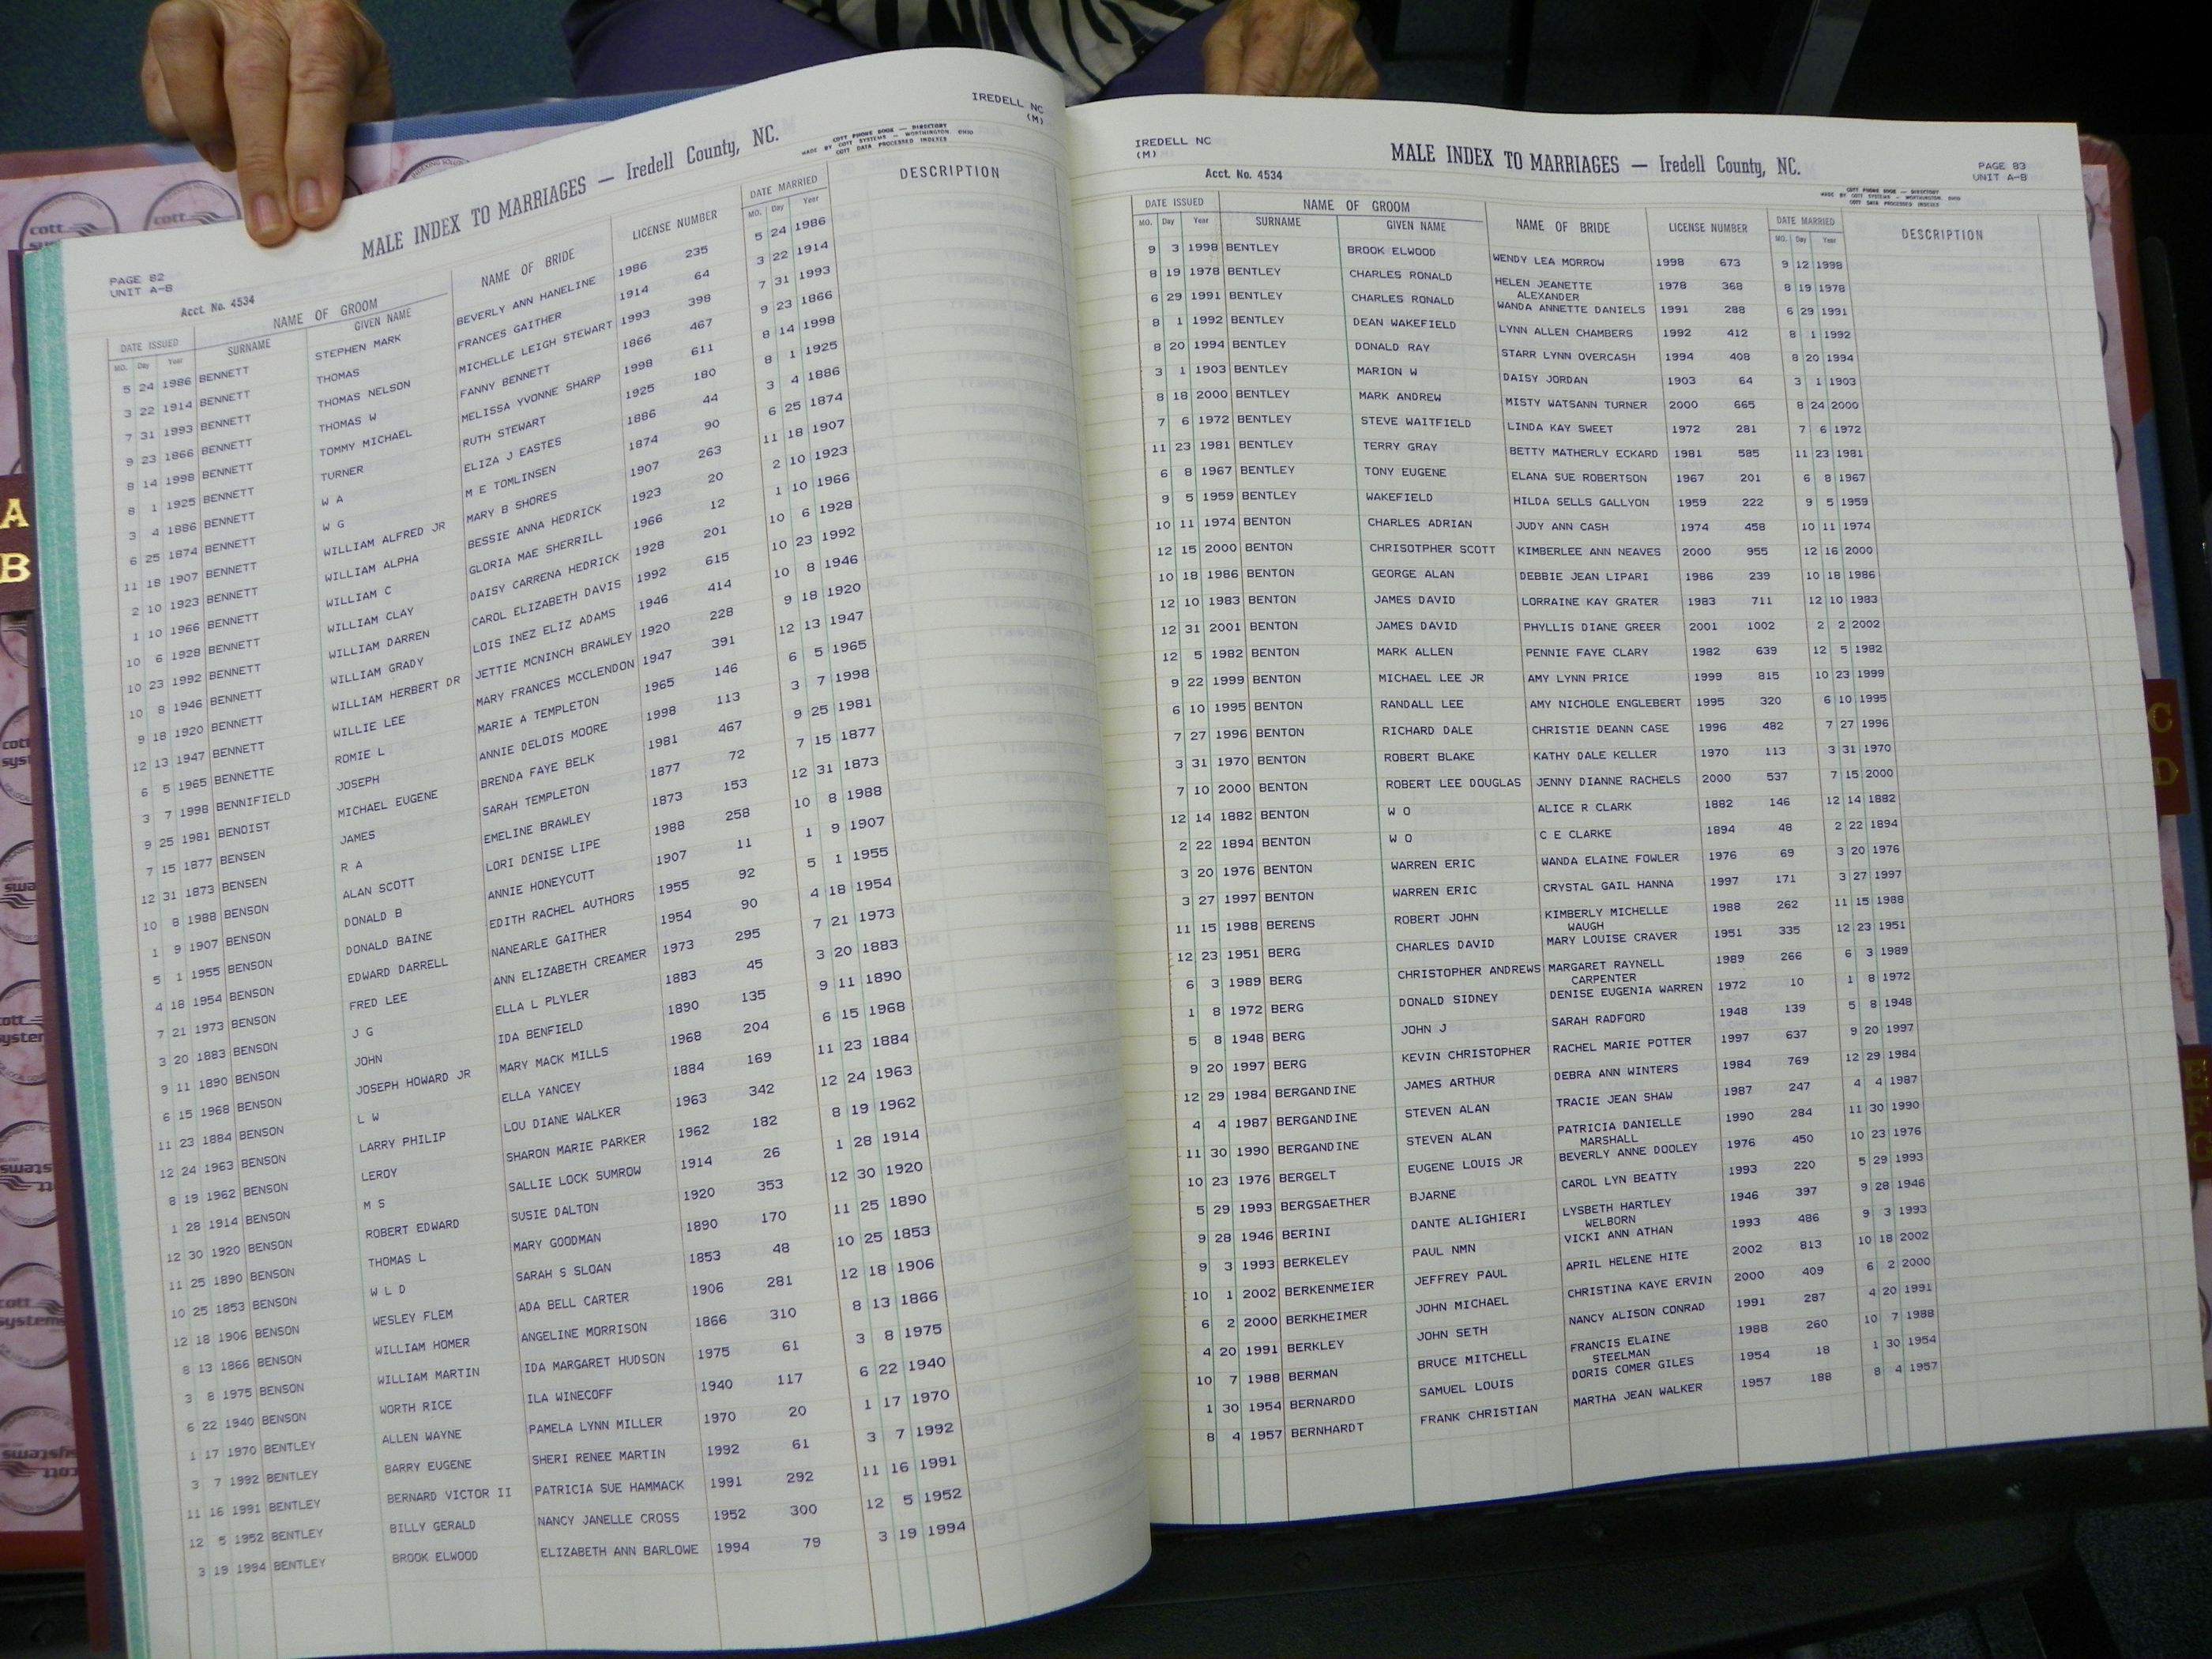 IREDELL NC
(M)
MALE INDEX TO MARRIAGES — Iredell County, NC.
COTT PHONE BOOK — DIRECTORY
MADE BY COTT SYSTEMS — WORTHINGTON, OHIO
COTT DATA PROCESSED INDEXES
PAGE 82
UNIT A-B
Acct. No. 4534
DATE ISSUED NAME OF GROOM NAME OF BRIDE LICENSE NUMBER DATE MARRIED DESCRIPTION
MO. Day Year SURNAME GIVEN NAME MO. Day Year
5 24 1986 BENNETT STEPHEN MARK BEVERLY ANN HANELINE 1986 235 5 24 1986
3 22 1914 BENNETT THOMAS FRANCES GAITHER 1914 64 3 22 1914
7 31 1993 BENNETT THOMAS NELSON MICHELLE LEIGH STEWART 1993 398 7 31 1993
9 23 1866 BENNETT THOMAS W FANNY BENNETT 1866 467 9 23 1866
8 14 1998 BENNETT TOMMY MICHAEL MELISSA YVONNE SHARP 1998 611 8 14 1998
8 1 1925 BENNETT TURNER RUTH STEWART 1925 180 8 1 1925
3 4 1886 BENNETT W A ELIZA J EASTES 1886 44 3 4 1886
6 25 1874 BENNETT W G M E TOMLINSEN 1874 90 6 25 1874
11 18 1907 BENNETT WILLIAM ALFRED JR MARY B SHORES 1907 263 11 18 1907
2 10 1923 BENNETT WILLIAM ALPHA BESSIE ANNA HEDRICK 1923 20 2 10 1923
1 10 1966 BENNETT WILLIAM C GLORIA MAE SHERRILL 1966 12 1 10 1966
10 6 1928 BENNETT WILLIAM CLAY DAISY CARRENA HEDRICK 1928 201 10 6 1928
10 23 1992 BENNETT WILLIAM DARREN CAROL ELIZABETH DAVIS 1992 615 10 23 1992
10 8 1946 BENNETT WILLIAM GRADY LOIS INEZ ELIZ ADAMS 1946 414 10 8 1946
9 18 1920 BENNETT WILLIAM HERBERT DR JETTIE MCNINCH BRAWLEY 1920 228 9 18 1920
12 13 1947 BENNETT WILLIE LEE MARY FRANCES MCCLENDON 1947 391 12 13 1947
6 5 1965 BENNETTE ROMIE L MARIE A TEMPLETON 1965 146 6 5 1965
3 7 1998 BENNIFIELD JOSEPH ANNIE DELOIS MOORE 1998 113 3 7 1998
9 25 1981 BENOIST MICHAEL EUGENE BRENDA FAYE BELK 1981 467 9 25 1981
7 15 1877 BENSEN JAMES SARAH TEMPLETON 1877 72 7 15 1877
12 31 1873 BENSEN R A EMELINE BRAWLEY 1873 153 12 31 1873
10 8 1988 BENSON ALAN SCOTT LORI DENISE LIPE 1988 258 10 8 1988
1 9 1907 BENSON DONALD B ANNIE HONEYCUTT 1907 11 1 9 1907
5 1 1955 BENSON DONALD BAINE EDITH RACHEL AUTHORS 1955 92 5 1 1955
4 18 1954 BENSON EDWARD DARRELL NANEARLE GAITHER 1954 90 4 18 1954
7 21 1973 BENSON FRED LEE ANN ELIZABETH CREAMER 1973 295 7 21 1973
3 20 1883 BENSON J G ELLA L PLYLER 1883 45 3 20 1883
9 11 1890 BENSON JOHN IDA BENFIELD 1890 135 9 11 1890
6 15 1968 BENSON JOSEPH HOWARD JR MARY MACK MILLS 1968 204 6 15 1968
11 23 1884 BENSON L W ELLA YANCEY 1884 169 11 23 1884
12 24 1963 BENSON LARRY PHILIP LOU DIANE WALKER 1963 342 12 24 1963
8 19 1962 BENSON LEROY SHARON MARIE PARKER 1962 182 8 19 1962
1 28 1914 BENSON M S SALLIE LOCK SUMROW 1914 26 1 28 1914
12 30 1920 BENSON ROBERT EDWARD SUSIE DALTON 1920 353 12 30 1920
11 25 1890 BENSON THOMAS L MARY GOODMAN 1890 170 11 25 1890
10 25 1853 BENSON W L D SARAH S SLOAN 1853 48 10 25 1853
12 18 1906 BENSON WESLEY FLEM ADA BELL CARTER 1906 281 12 18 1906
8 13 1866 BENSON WILLIAM HOMER ANGELINE MORRISON 1866 310 8 13 1866
3 8 1975 BENSON WILLIAM MARTIN IDA MARGARET HUDSON 1975 61 3 8 1975
6 22 1940 BENSON WORTH RICE ILA WINECOFF 1940 117 6 22 1940
1 17 1970 BENTLEY ALLEN WAYNE PAMELA LYNN MILLER 1970 20 1 17 1970
3 7 1992 BENTLEY BARRY EUGENE SHERI RENEE MARTIN 1992 61 3 7 1992
11 16 1991 BENTLEY BERNARD VICTOR II PATRICIA SUE HAMMACK 1991 292 11 16 1991
12 5 1952 BENTLEY BILLY GERALD NANCY JANELLE CROSS 1952 300 12 5 1952
3 19 1994 BENTLEY BROOK ELWOOD ELIZABETH ANN BARLOWE 1994 79 3 19 1994
IREDELL NC
(M)
MALE INDEX TO MARRIAGES — Iredell County, NC.
PAGE 83
UNIT A-B
Acct. No. 4534
COTT PHONE BOOK — DIRECTORY
MADE BY COTT SYSTEMS — WORTHINGTON, OHIO
COTT DATA PROCESSED INDEXES
DATE ISSUED NAME OF GROOM NAME OF BRIDE LICENSE NUMBER DATE MARRIED DESCRIPTION
MO. Day Year SURNAME GIVEN NAME MO. Day Year
9 3 1998 BENTLEY BROOK ELWOOD WENDY LEA MORROW 1998 673 9 12 1998
8 19 1978 BENTLEY CHARLES RONALD HELEN JEANETTE 1978 368 8 19 1978
ALEXANDER
6 29 1991 BENTLEY CHARLES RONALD WANDA ANNETTE DANIELS 1991 288 6 29 1991
8 1 1992 BENTLEY DEAN WAKEFIELD LYNN ALLEN CHAMBERS 1992 412 8 1 1992
8 20 1994 BENTLEY DONALD RAY STARR LYNN OVERCASH 1994 408 8 20 1994
3 1 1903 BENTLEY MARION W DAISY JORDAN 1903 64 3 1 1903
8 18 2000 BENTLEY MARK ANDREW MISTY WATSANN TURNER 2000 665 8 24 2000
7 6 1972 BENTLEY STEVE WAITFIELD LINDA KAY SWEET 1972 281 7 6 1972
11 23 1981 BENTLEY TERRY GRAY BETTY MATHERLY ECKARD 1981 585 11 23 1981
6 8 1967 BENTLEY TONY EUGENE ELANA SUE ROBERTSON 1967 201 6 8 1967
9 5 1959 BENTLEY WAKEFIELD HILDA SELLS GALLYON 1959 222 9 5 1959
10 11 1974 BENTON CHARLES ADRIAN JUDY ANN CASH 1974 458 10 11 1974
12 15 2000 BENTON CHRISOTPHER SCOTT KIMBERLEE ANN NEAVES 2000 955 12 16 2000
10 18 1986 BENTON GEORGE ALAN DEBBIE JEAN LIPARI 1986 239 10 18 1986
12 10 1983 BENTON JAMES DAVID LORRAINE KAY GRATER 1983 711 12 10 1983
12 31 2001 BENTON JAMES DAVID PHYLLIS DIANE GREER 2001 1002 2 2 2002
12 5 1982 BENTON MARK ALLEN PENNIE FAYE CLARY 1982 639 12 5 1982
9 22 1999 BENTON MICHAEL LEE JR AMY LYNN PRICE 1999 815 10 23 1999
6 10 1995 BENTON RANDALL LEE AMY NICHOLE ENGLEBERT 1995 320 6 10 1995
7 27 1996 BENTON RICHARD DALE CHRISTIE DEANN CASE 1996 482 7 27 1996
3 31 1970 BENTON ROBERT BLAKE KATHY DALE KELLER 1970 113 3 31 1970
7 10 2000 BENTON ROBERT LEE DOUGLAS JENNY DIANNE RACHELS 2000 537 7 15 2000
12 14 1882 BENTON W O ALICE R CLARK 1882 146 12 14 1882
2 22 1894 BENTON W O C E CLARKE 1894 48 2 22 1894
3 20 1976 BENTON WARREN ERIC WANDA ELAINE FOWLER 1976 69 3 20 1976
3 27 1997 BENTON WARREN ERIC CRYSTAL GAIL HANNA 1997 171 3 27 1997
11 15 1988 BERENS ROBERT JOHN KIMBERLY MICHELLE 1988 262 11 15 1988
WAUGH
12 23 1951 BERG CHARLES DAVID MARY LOUISE CRAVER 1951 335 12 23 1951
6 3 1989 BERG CHRISTOPHER ANDREWS MARGARET RAYNELL 1989 266 6 3 1989
CARPENTER
1 8 1972 BERG DONALD SIDNEY DENISE EUGENIA WARREN 1972 10 1 8 1972
5 8 1948 BERG JOHN J SARAH RADFORD 1948 139 5 8 1948
9 20 1997 BERG KEVIN CHRISTOPHER RACHEL MARIE POTTER 1997 637 9 20 1997
12 29 1984 BERGANDINE JAMES ARTHUR DEBRA ANN WINTERS 1984 769 12 29 1984
4 4 1987 BERGANDINE STEVEN ALAN TRACIE JEAN SHAW 1987 247 4 4 1987
11 30 1990 BERGANDINE STEVEN ALAN PATRICIA DANIELLE 1990 284 11 30 1990
MARSHALL
10 23 1976 BERGELT EUGENE LOUIS JR BEVERLY ANNE DOOLEY 1976 450 10 23 1976
5 29 1993 BERGSAETHER BJARNE CAROL LYN BEATTY 1993 220 5 29 1993
9 28 1946 BERINI DANTE ALIGHIERI LYSBETH HARTLEY 1946 397 9 28 1946
WELBORN
9 3 1993 BERKELEY PAUL NMN VICKI ANN ATHAN 1993 486 9 3 1993
10 1 2002 BERKENMEIER JEFFREY PAUL APRIL HELENE HITE 2002 813 10 18 2002
6 2 2000 BERKHEIMER JOHN MICHAEL CHRISTINA KAYE ERVIN 2000 409 6 2 2000
4 20 1991 BERKLEY JOHN SETH NANCY ALISON CONRAD 1991 287 4 20 1991
10 7 1988 BERMAN BRUCE MITCHELL FRANCIS ELAINE 1988 260 10 7 1988
STEELMAN
1 30 1954 BERNARDO SAMUEL LOUIS DORIS COMER GILES 1954 18 1 30 1954
8 4 1957 BERNHARDT FRANK CHRISTIAN MARTHA JEAN WALKER 1957 188 8 4 1957
A
B
C
D
cott
systems